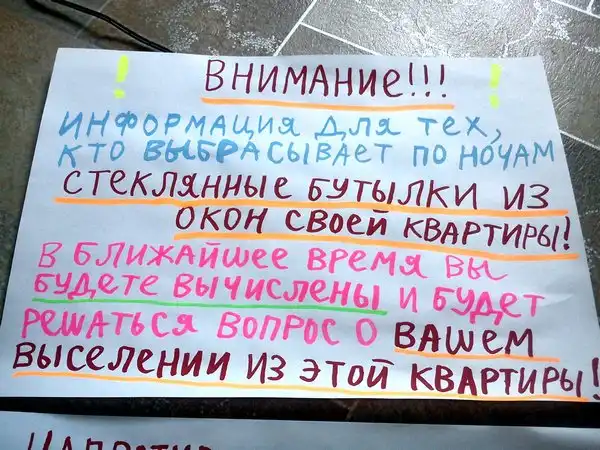 ! ВНИМАНИЕ!!! !
ИНФОРМАЦИЯ ДЛЯ ТЕХ,
КТО ВЫБРАСЫВАЕТ ПО НОЧАМ
СТЕКЛЯННЫЕ БУТЫЛКИ ИЗ
ОКОН СВОЕЙ КВАРТИРЫ!
В БЛИЖАЙШЕЕ ВРЕМЯ ВЫ
БУДЕТЕ ВЫЧИСЛЕНЫ И БУДЕТ
РЕШАТЬСЯ ВОПРОС О ВАШЕМ
ВЫСЕЛЕНИИ ИЗ ЭТОЙ КВАРТИРЫ!